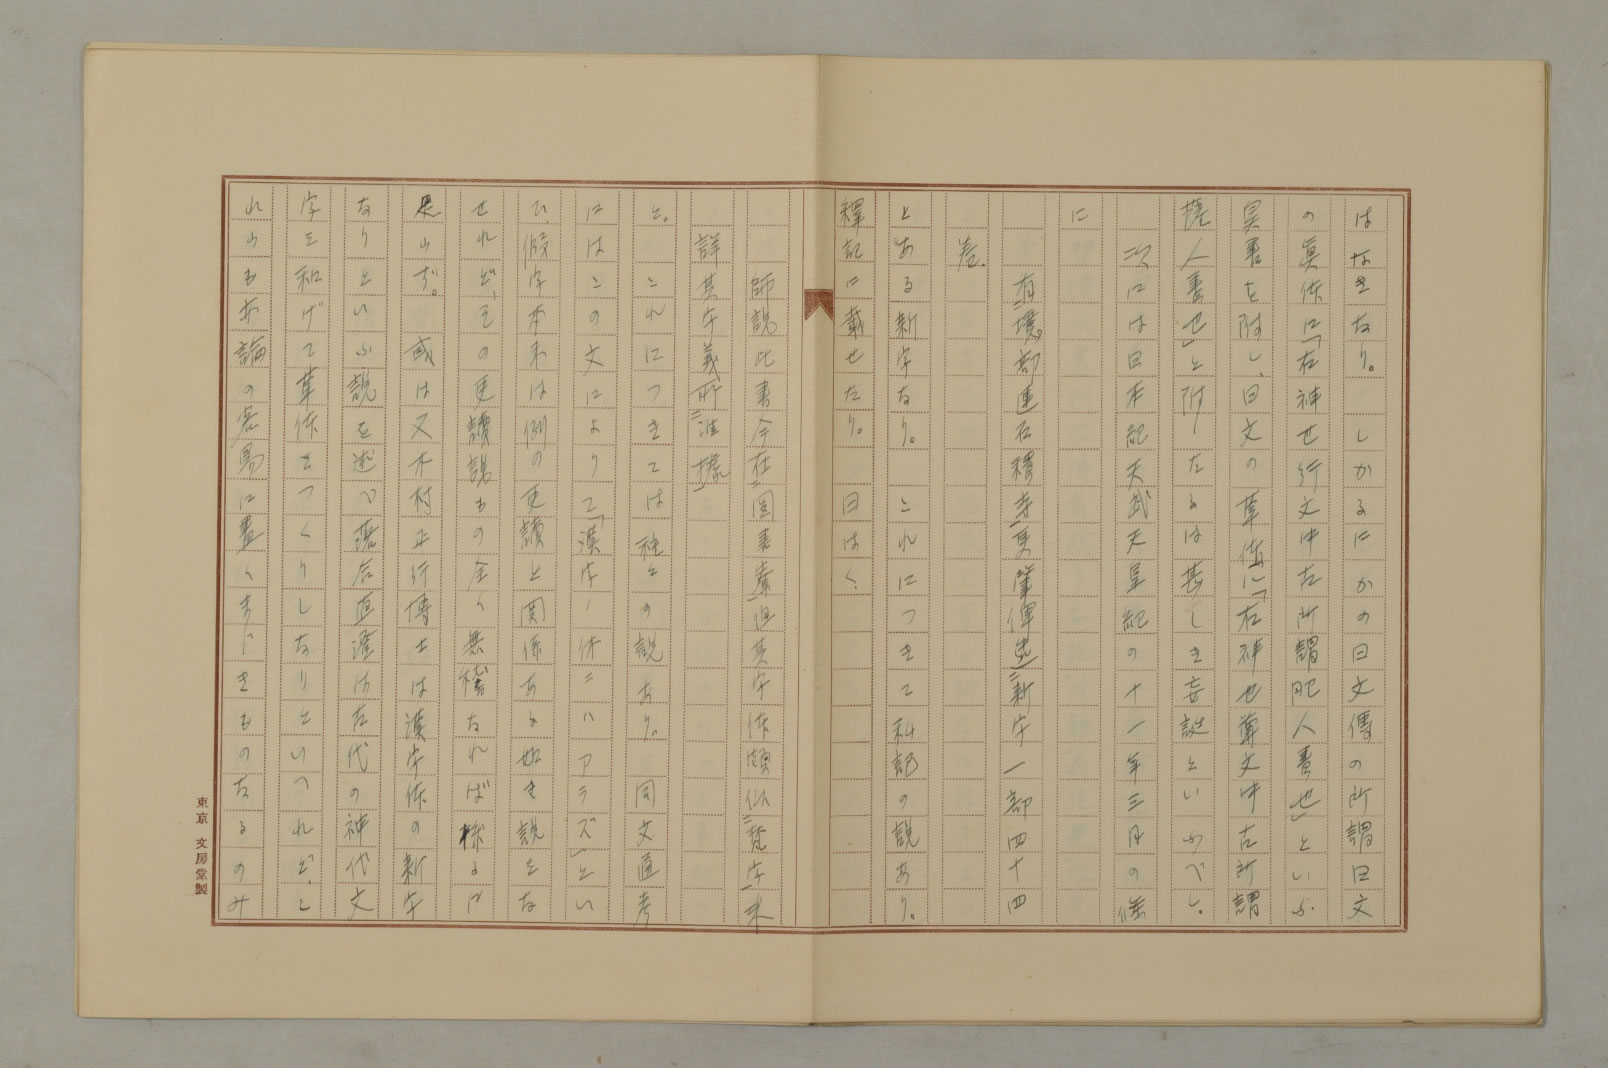 はなきなり。しかるにかの日文傳の所謂日文
の眞体に「右神世行文中古所謂肥人書也」といふ
奥書を附し、日文の草体に「右神世草文中古所謂
薩人書也」と附したるは甚しき妄誕といふべし。
次には日本紀天武天皇紀の十一年三月の條
に
有境部連石積寺更肇俾造新字一部四十四
巻。
とある新字なり。これにつきて私記の説あり。
釋記に載せたり。曰はく、
師説此書今在圖書寮但其字体頗似梵字未
詳其字義所准據
と。これにつきては種との説あり。同文通考
にはこの文によりて「漢字ノ体ニハアラズ」とい
ひ、假字本末は例の吏讀と関係ある如き説をな
せれど、その吏讀説もの全く無稽なれば採るに
足らず。或は又木村正行博士は漢字体の新字
なりといふ説を述べ落合直澄は古代の神代文
字を和げて草体をつくりしなりといつれど、こ
れらも亦論の
に
くまじきものなるのみ
東京 文房堂製